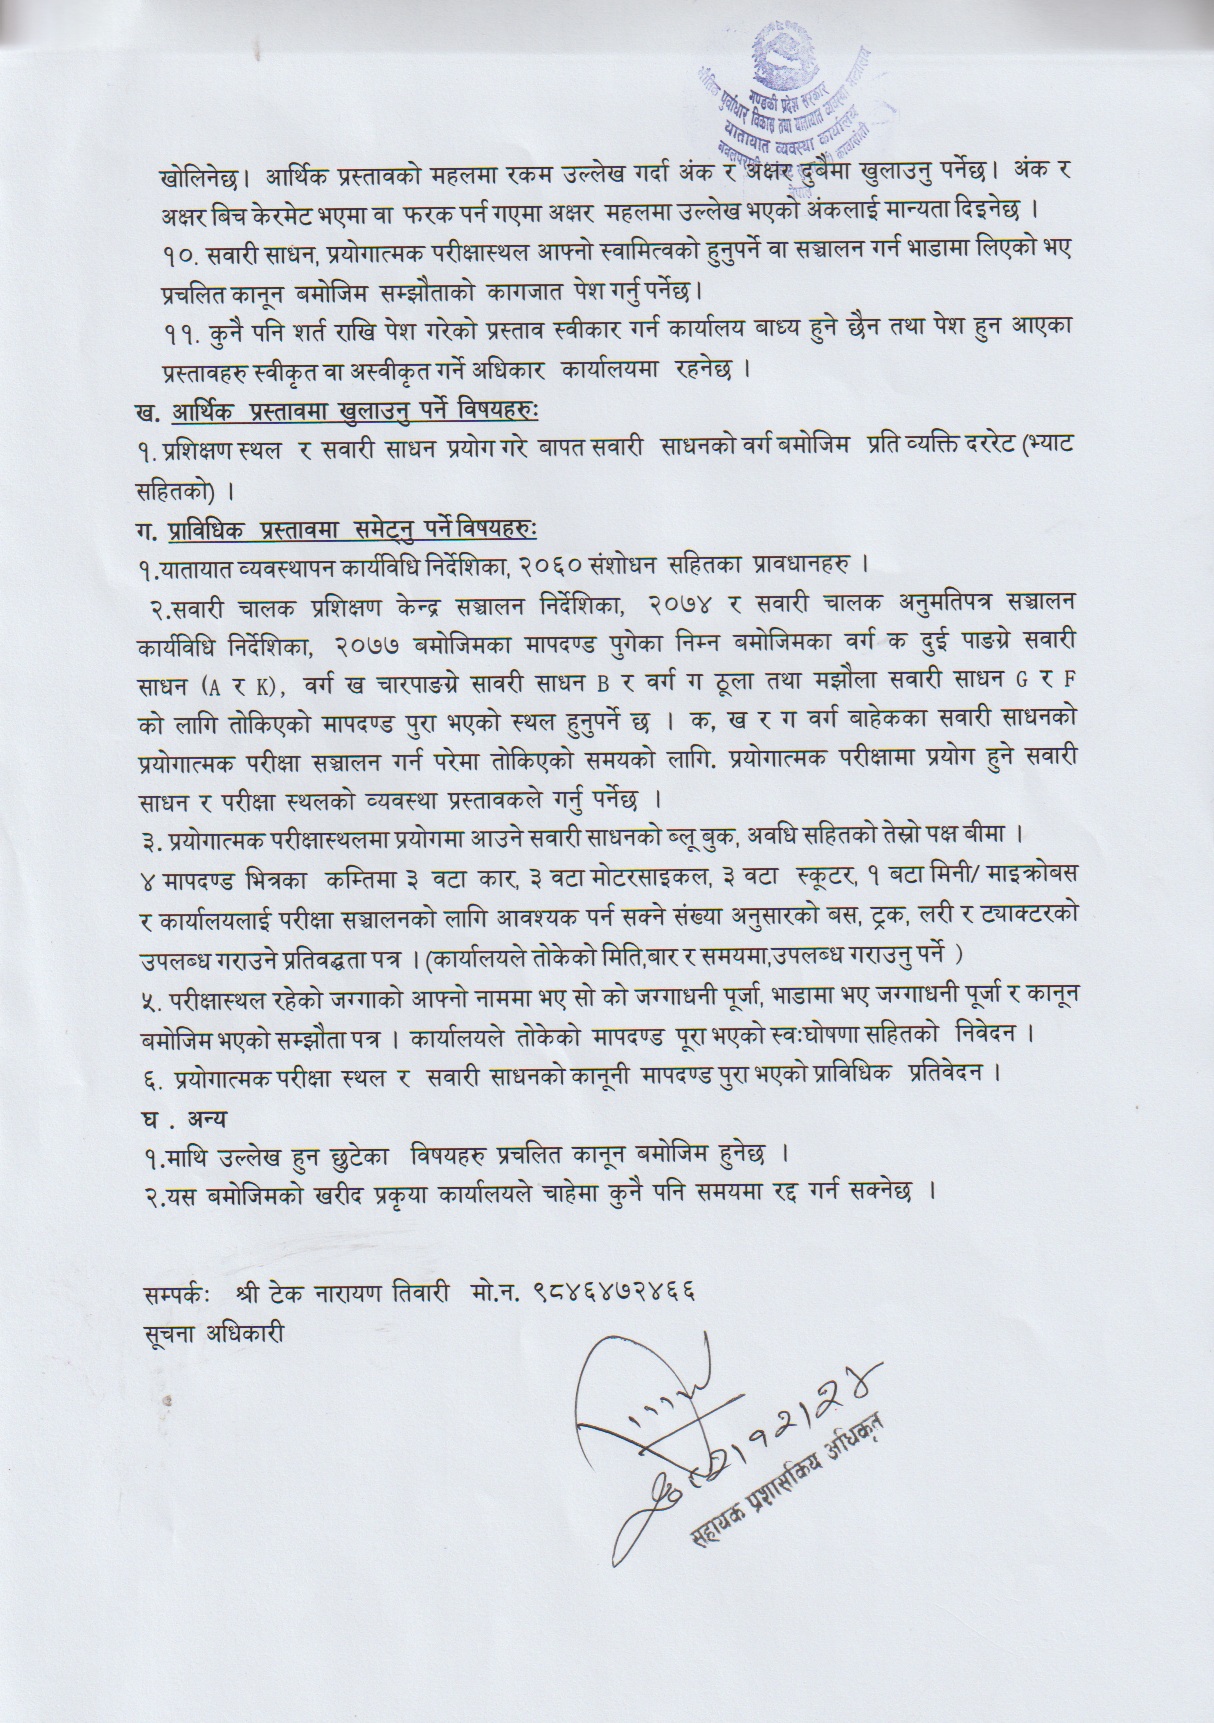 गण्डकी प्रदेश सरकार
भौतिक पुर्वाधार विकास तथा यातायात व्यवस्था मन्त्रालय
यातायात व्यवस्था कार्यालय
खोलिनेछ। आर्थिक प्रस्तावको महलमा रकम उल्लेख गर्दा अंक र अक्षर दुबैमा खुलाउनु पर्नेछ। अंक र
अक्षर बिच केरमेट भएमा वा फरक पर्न गएमा अक्षर महलमा उल्लेख भएको अंकलाई मान्यता दिइनेछ ।
१०. सवारी साधन, प्रयोगात्मक परीक्षास्थल आफ्नो स्वामित्वको हुनुपर्ने वा सञ्चालन गर्न भाडामा लिएको भए
प्रचलित कानून बमोजिम सम्झौताको कागजात पेश गर्नु पर्नेछ।
११. कुनै पनि शर्त राखि पेश गरेको प्रस्ताव स्वीकार गर्न कार्यालय बाध्य हुने छैन तथा पेश हुन आएका
प्रस्तावहरु स्वीकृत वा अस्वीकृत गर्ने अधिकार कार्यालयमा रहनेछ ।
ख. आर्थिक प्रस्तावमा खुलाउनु पर्ने विषयहरुः
१. प्रशिक्षण स्थल र सवारी साधन प्रयोग गरे बापत सवारी साधनको वर्ग बमोजिम प्रति व्यक्ति दररेट (भ्याट
सहितको) ।
ग. प्राविधिक प्रस्तावमा समेट्नु पर्ने विषयहरुः
१.यातायात व्यवस्थापन कार्यविधि निर्देशिका, २०६० संशोधन सहितका प्रावधानहरु ।
२.सवारी चालक प्रशिक्षण केन्द्र सञ्चालन निर्देशिका, २०७४ र सवारी चालक अनुमतिपत्र सञ्चालन
कार्यविधि निर्देशिका, २०७७ बमोजिमका मापदण्ड पुगेका निम्न बमोजिमका वर्ग क दुई पाङग्रे सवारी
साधन (A र K), वर्ग ख चारपाङग्रे सावरी साधन B र वर्ग ग ठूला तथा मझौला सवारी साधन G र F
को लागि तोकिएको मापदण्ड पुरा भएको स्थल हुनुपर्ने छ । क, ख र ग वर्ग बाहेकका सवारी साधनको
प्रयोगात्मक परीक्षा सञ्चालन गर्न परेमा तोकिएको समयको लागि. प्रयोगात्मक परीक्षामा प्रयोग हुने सवारी
साधन र परीक्षा स्थलको व्यवस्था प्रस्तावकले गर्नु पर्नेछ ।
३. प्रयोगात्मक परीक्षास्थलमा प्रयोगमा आउने सवारी साधनको ब्लू बुक, अवधि सहितको तेस्रो पक्ष बीमा ।
४ मापदण्ड भित्रका कम्तिमा ३ वटा कार, ३ वटा मोटरसाइकल, ३ वटा स्कूटर, १ बटा मिनी/ माइक्रोबस
र कार्यालयलाई परीक्षा सञ्चालनको लागि आवश्यक पर्न सक्ने संख्या अनुसारको बस, ट्रक, लरी र ट्याक्टरको
उपलब्ध गराउने प्रतिवद्धता पत्र । (कार्यालयले तोकेको मिति,बार र समयमा,उपलब्ध गराउनु पर्ने )
५. परीक्षास्थल रहेको जग्गाको आफ्नो नाममा भए सो को जग्गाधनी पूर्जा, भाडामा भए जग्गाधनी पूर्जा र कानून
बमोजिम भएको सम्झौता पत्र । कार्यालयले तोकेको मापदण्ड पूरा भएको स्वःघोषणा सहितको निवेदन ।
६. प्रयोगात्मक परीक्षा स्थल र सवारी साधनको कानूनी मापदण्ड पुरा भएको प्राविधिक प्रतिवेदन ।
घ . अन्य
१.माथि उल्लेख हुन छुटेका विषयहरु प्रचलित कानून बमोजिम हुनेछ ।
२.यस बमोजिमको खरीद प्रकृया कार्यालयले चाहेमा कुनै पनि समयमा रद्द गर्न सक्नेछ ।
सम्पर्कः श्री टेक नारायण तिवारी मो.न. ९८४६४७२४६६
सूचना अधिकारी
सहायक प्रशासकिय अधिकृत